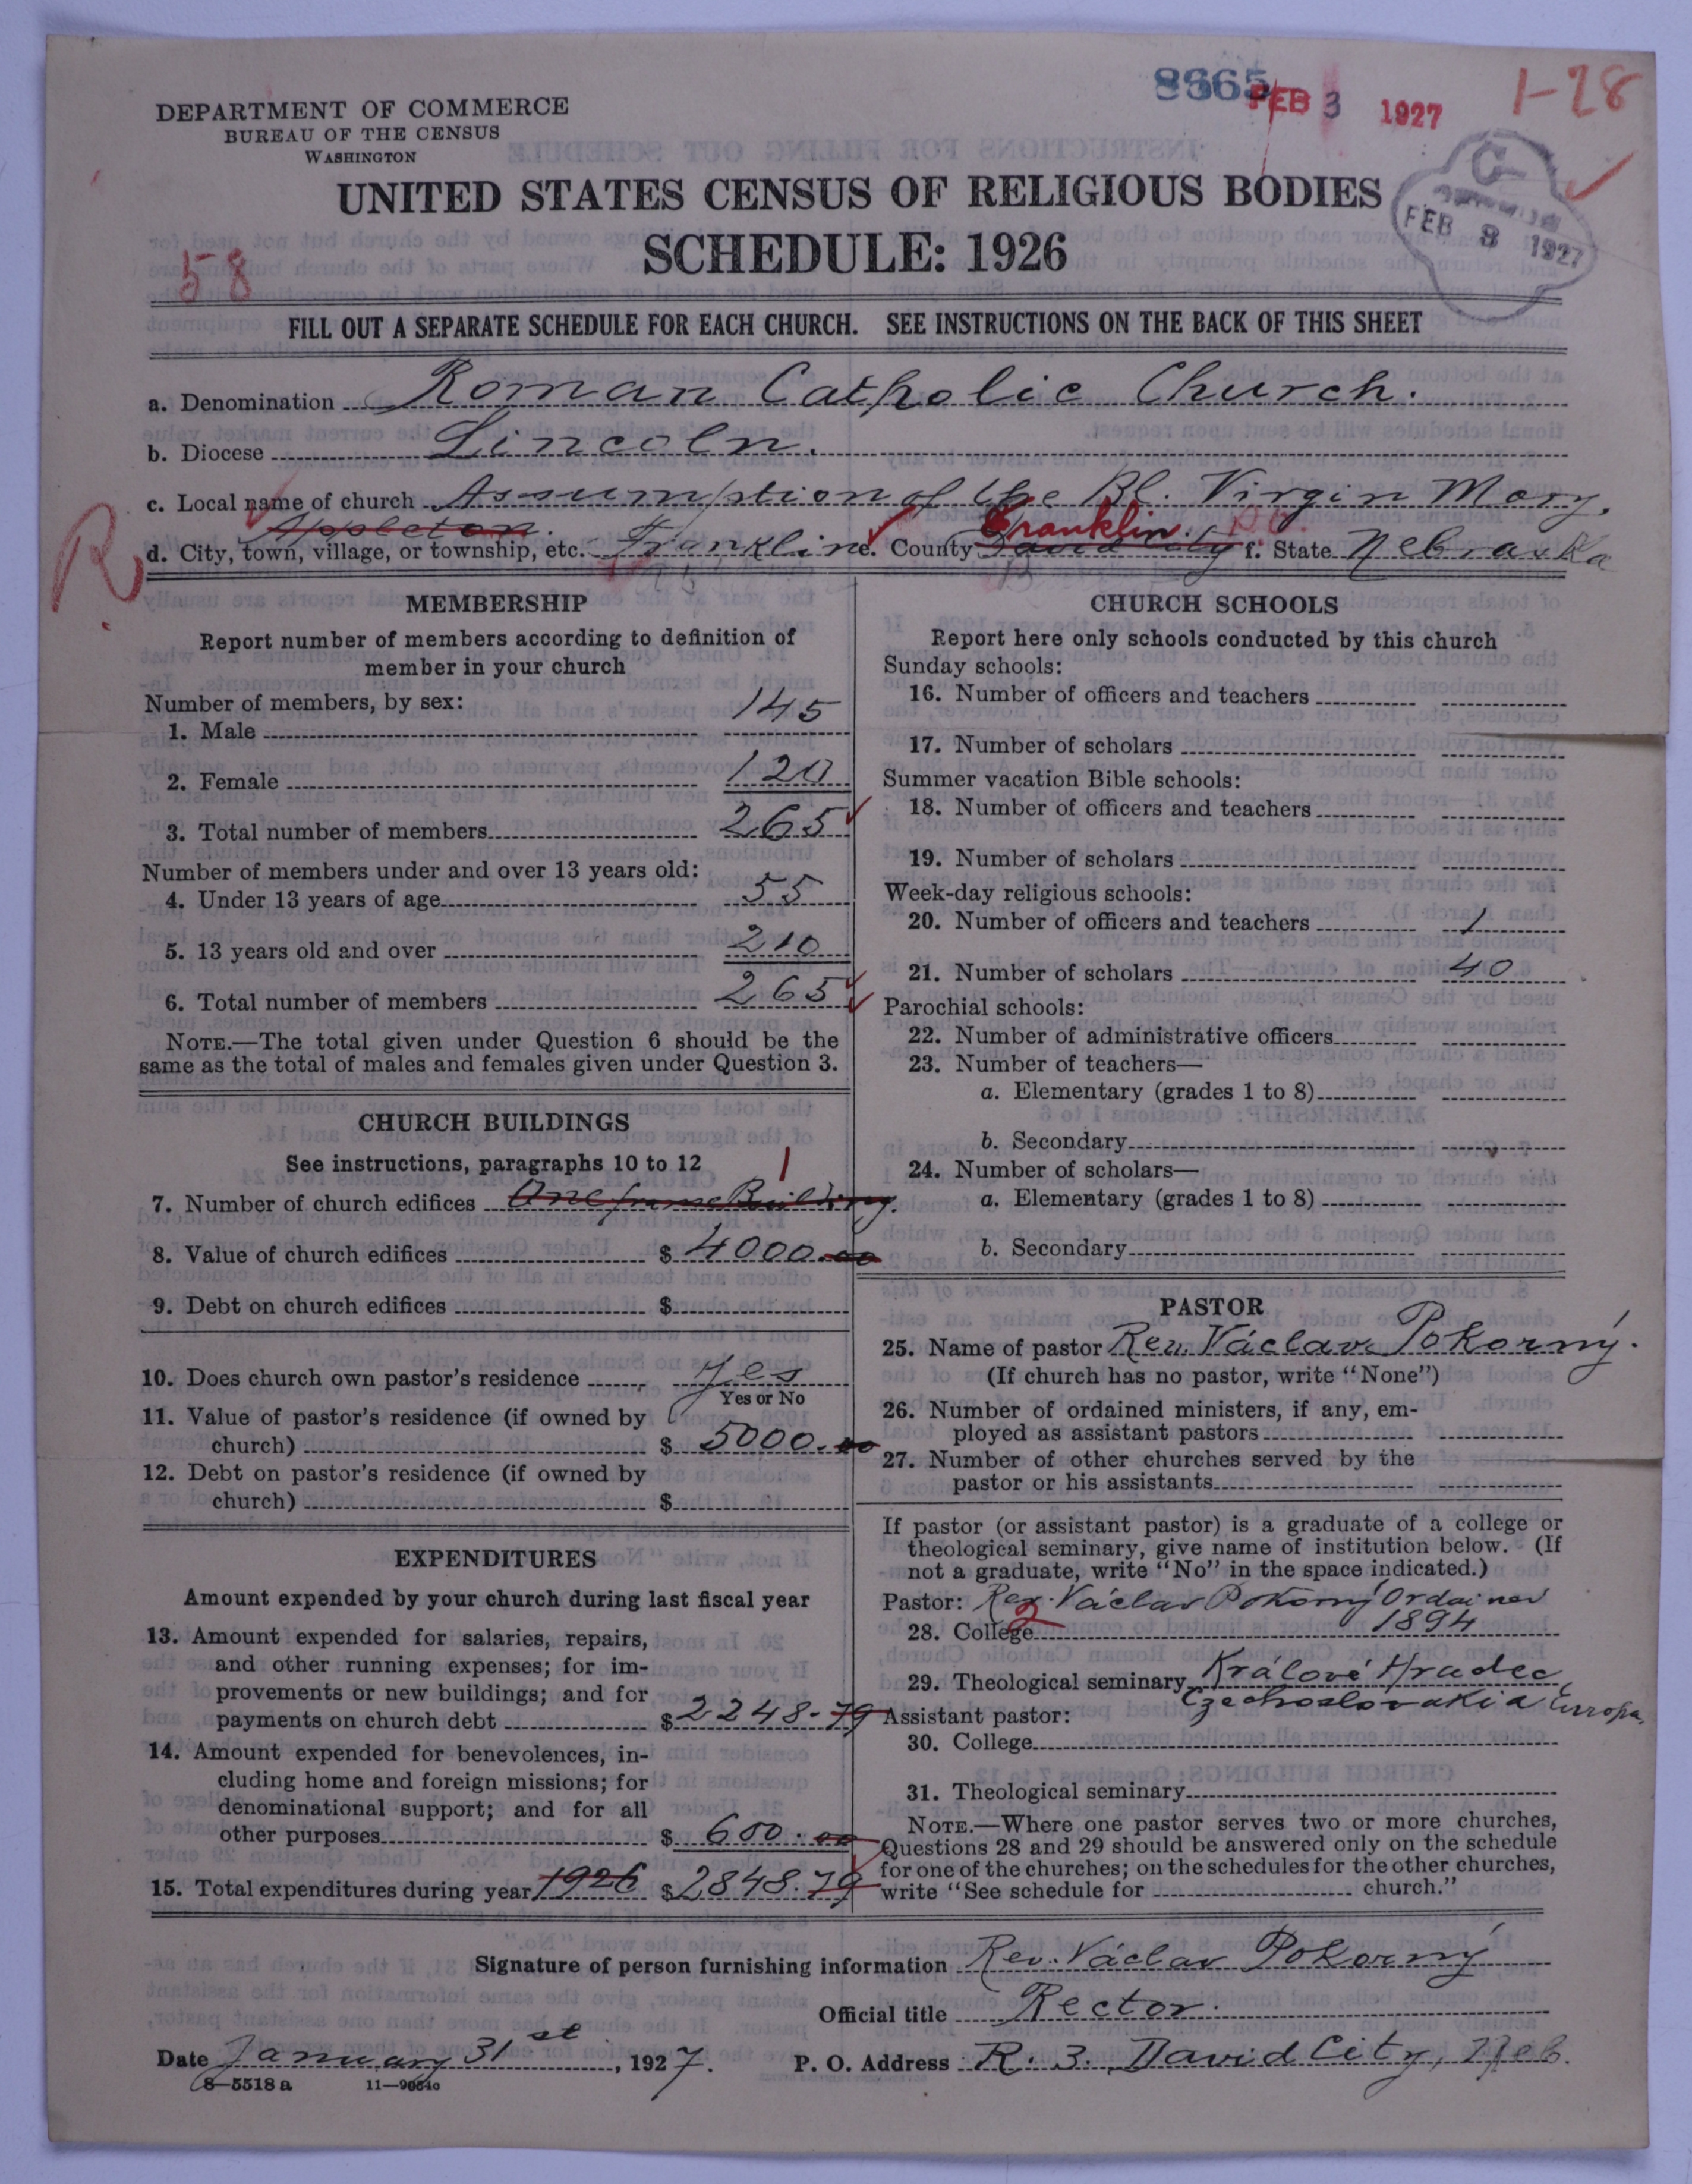 8365
FEB 3 1927
1-28
DEPARTMENT OF COMMERCE
BUREAU OF THE CENSUS
WASHINGTON
UNITED STATES CENSUS OF RELIGIOUS BODIES
SCHEDULE: 1926
FEB 8 1927
58
FILL OUT A SEPARATE SCHEDULE FOR EACH CHURCH. SEE INSTRUCTIONS ON THE BACK OF THIS SHEET
a. Denomination Roman Catholic Church.
b. Diocese Lincoln.
c. Local name of church Assumption of the Bl. Virgin Mary.
Appleton. Franklin.
d. City, town, village, or township, etc. Franklin e. County David City f. State Nebraska
R.
MEMBERSHIP
Report number of members according to definition of
member in your church
Number of members, by sex:
1. Male 145
2. Female 120
3. Total number of members 265
Number of members under and over 13 years old:
4. Under 13 years of age 55
5. 13 years old and over 210
6. Total number of members 265
NOTE.—The total given under Question 6 should be the
same as the total of males and females given under Question 3.
CHURCH BUILDINGS
See instructions, paragraphs 10 to 12 1
7. Number of church edifices One frame Building.
8. Value of church edifices $ 4000.00
9. Debt on church edifices $
10. Does church own pastor's residence yes
Yes or No
11. Value of pastor's residence (if owned by
church) $ 5000.00
12. Debt on pastor's residence (if owned by
church) $
EXPENDITURES
Amount expended by your church during last fiscal year
13. Amount expended for salaries, repairs,
and other running expenses; for im-
provements or new buildings; and for
payments on church debt $ 2248.79
14. Amount expended for benevolences, in-
cluding home and foreign missions; for
denominational support; and for all
other purposes $ 600.00
15. Total expenditures during year 1926 $ 2848.79
CHURCH SCHOOLS
Report here only schools conducted by this church
Sunday schools:
16. Number of officers and teachers
17. Number of scholars
Summer vacation Bible schools:
18. Number of officers and teachers
19. Number of scholars
Week-day religious schools:
20. Number of officers and teachers 1
21. Number of scholars 40
Parochial schools:
22. Number of administrative officers
23. Number of teachers—
a. Elementary (grades 1 to 8)
b. Secondary
24. Number of scholars—
a. Elementary (grades 1 to 8)
b. Secondary
PASTOR
25. Name of pastor Rev. Václav Pokorný.
(If church has no pastor, write "None")
26. Number of ordained ministers, if any, em-
ployed as assistant pastors
27. Number of other churches served by the
pastor or his assistants
If pastor (or assistant pastor) is a graduate of a college or
theological seminary, give name of institution below. (If
not a graduate, write "No" in the space indicated.)
Pastor: Rev. Václav Pokorný Ordained
28. College 2 1894
29. Theological seminary Králové Hradec
Czechoslovakia Europa.
Assistant pastor:
30. College
31. Theological seminary
NOTE.—Where one pastor serves two or more churches,
Questions 28 and 29 should be answered only on the schedule
for one of the churches; on the schedules for the other churches,
write "See schedule for church."
Signature of person furnishing information Rev. Václav Pokorný
Official title Rector.
Date January 31st, 1927. P. O. Address R. 3. David City, Neb.
8—5518 a 11—9054o